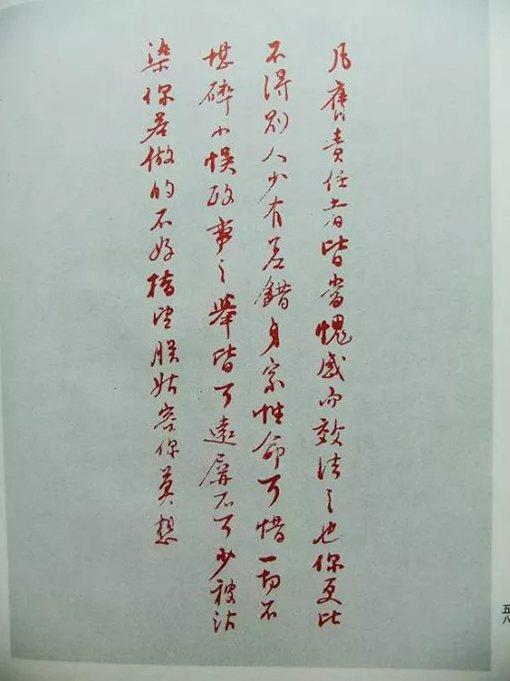 凡膺責任者皆當愧感而效法之也你更比
不得別人少有差錯身家性命可惜一切不
堪碎小悞政事之舉皆可遠屏不可少被沾
染你若做的不好指望朕姑容你莫想
五八